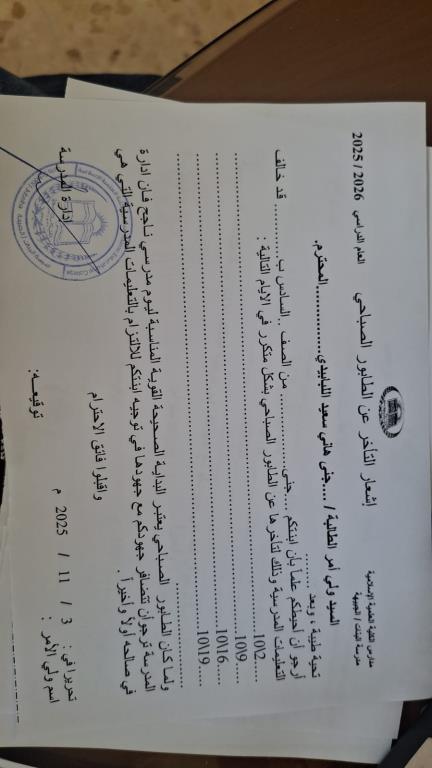 مدارس الكلية العلمية الإسلامية
مدرسة البنات / الجبيهة
إشعار التأخر عن الطابور الصباحي العام الدراسي 2025 / 2026
السيد ولي أمر الطالبة / ....جنى هاني سعيد اللبابيدي...............المحترم.
تحية طيبة ، وبعد ............
أرجو أن أحيطكم علماً بأن ابنتكم ....جنى............. من الصف ...السادس ب ........ قد خالفت
التعليمات المدرسية وذلك لتأخرها عن الطابور الصباحي بشكل متكرر في الايام التالية :
10\2
10\9
10\16
10\19
ولما كان الطابور الصباحي يعتبر البداية الصحيحة القوية المناسبة ليوم مدرسي ناجح فإن ادارة
المدرسة ترجو أن تتضافر جهودكم مع جهودها في توجيه ابنتكم للالتزام بالتعليمات المدرسية التي هي
في صالحه أولاً وأخيراً .
واقبلوا فائق الاحترام
تحريراً في : 3 / 11 / 2025 م
إدارة المدرسة
اسم ولي الأمر :
توقيعه: